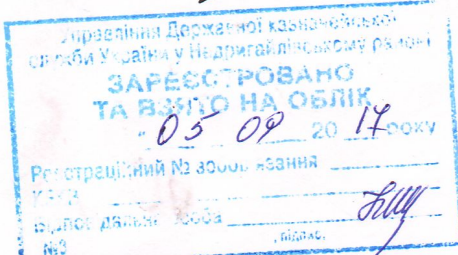 Управління Державної казначейської
служби України у Недригайлівському районі
ЗАРЕЄСТРОВАНО
ТА ВЗЯТО НА ОБЛІК
" 05 09 20 17 року
Реєстраційний № зобов'язання
Відповідальна особа
№3 , підпис,